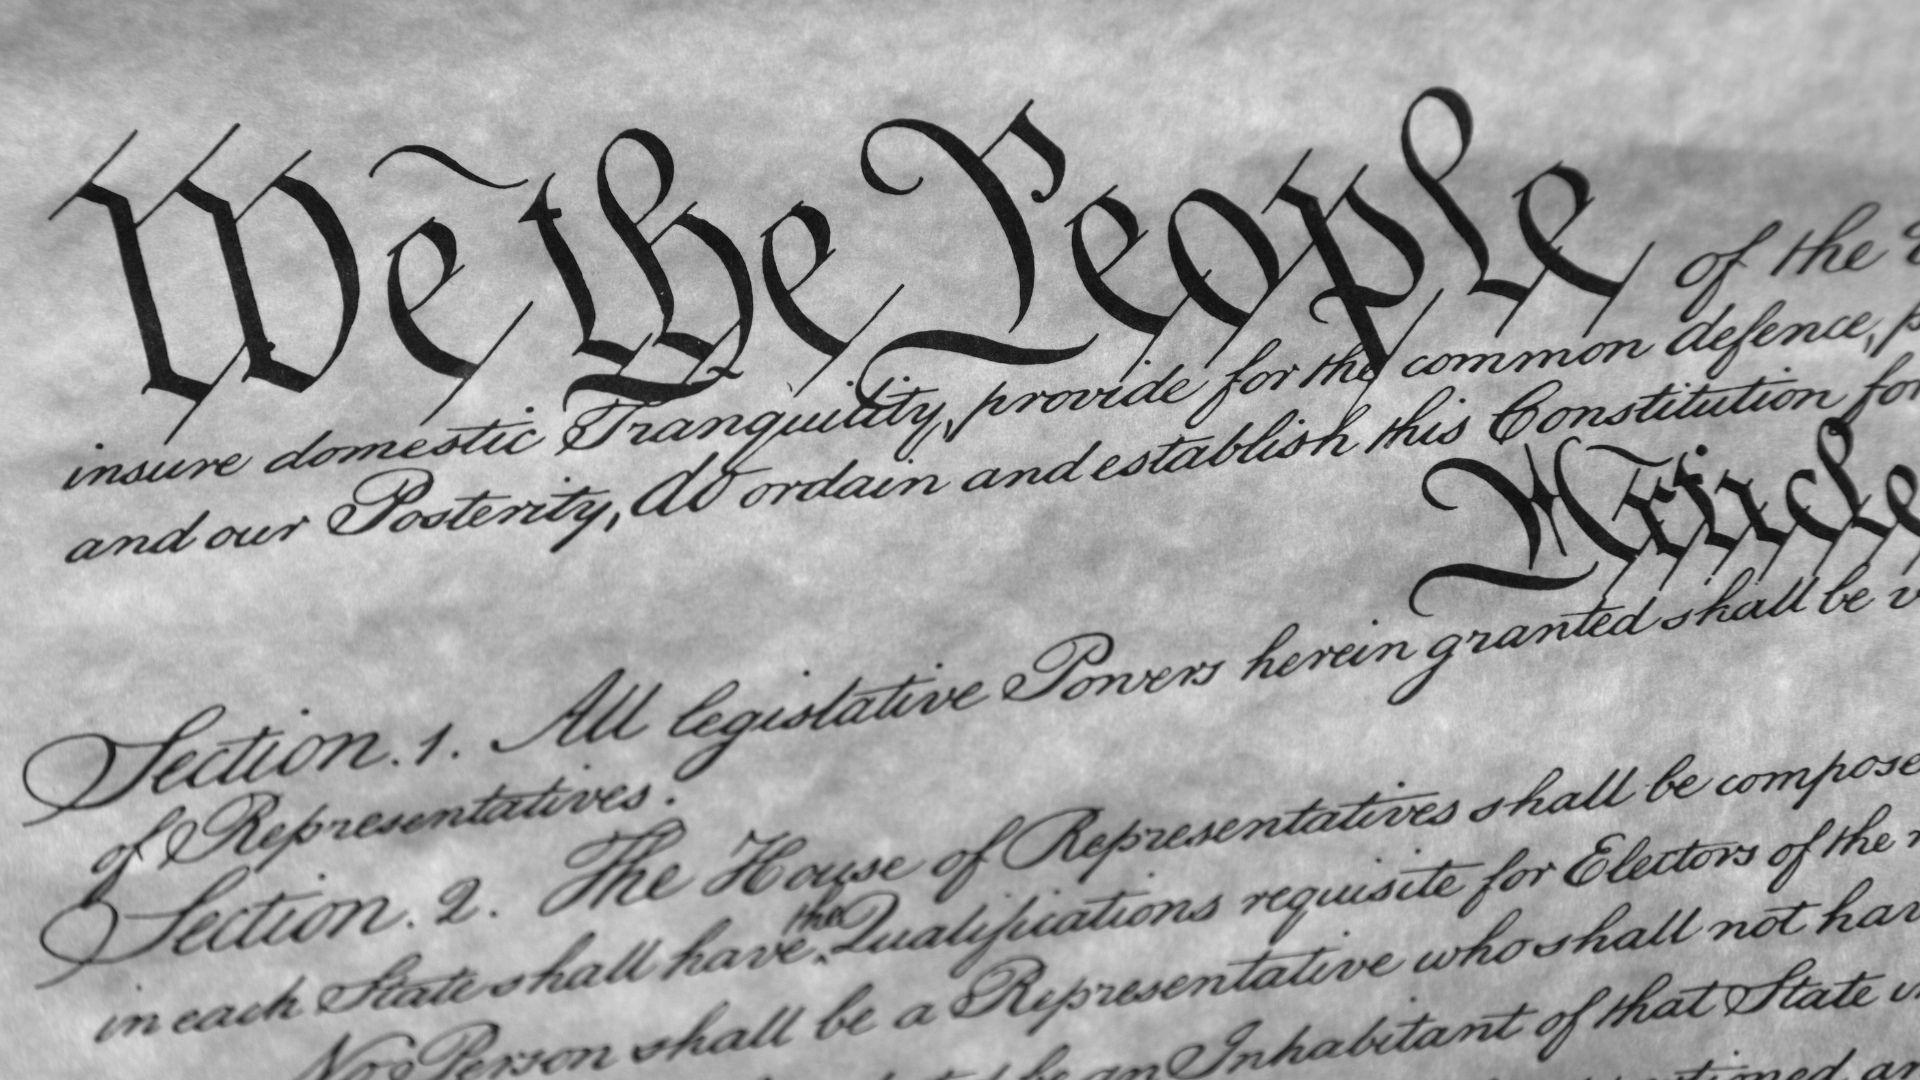 We the People of the
insure domestic Tranquility, provide for the common defence,
and our Posterity, do ordain and establish this Constitution for
Article
Section. 1. All legislative Powers herein granted shall be
of Representatives.
Section. 2. The House of Representatives shall be compose
the
in each State shall have Qualifications requisite for Electors of the
No Person shall be a Representative who shall not hav
be an Inhabitant of that State